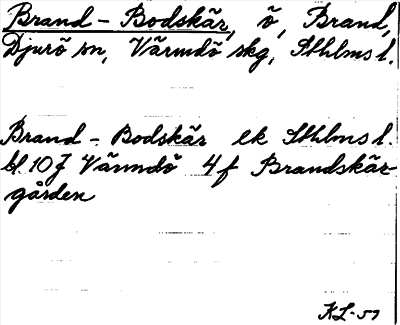 Brand-Bodskär, ö, Brand,
Djurö sn, Värmdö skg, Sthlms l.
Brand-Bodskär ek Sthlms l.
bl. 10 J Värmdö 4f Brandskär-
gården
KL-57